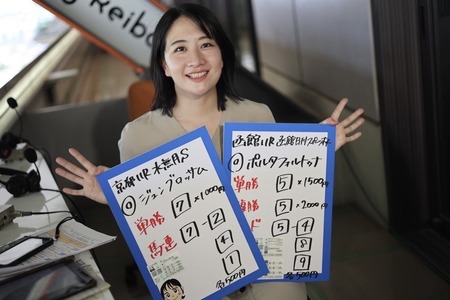 Keiba
京都11R 木無S
◎ジュンブロッサム
単勝 7 ×1000円
馬連 7-2
4
1
各500円
函館11R 函館日刊スポーツ杯
◎ポルタフォルトゥナ
単勝 5 ×1500円
複勝 5 ×2000円
ド 5-4
8
9
各500円